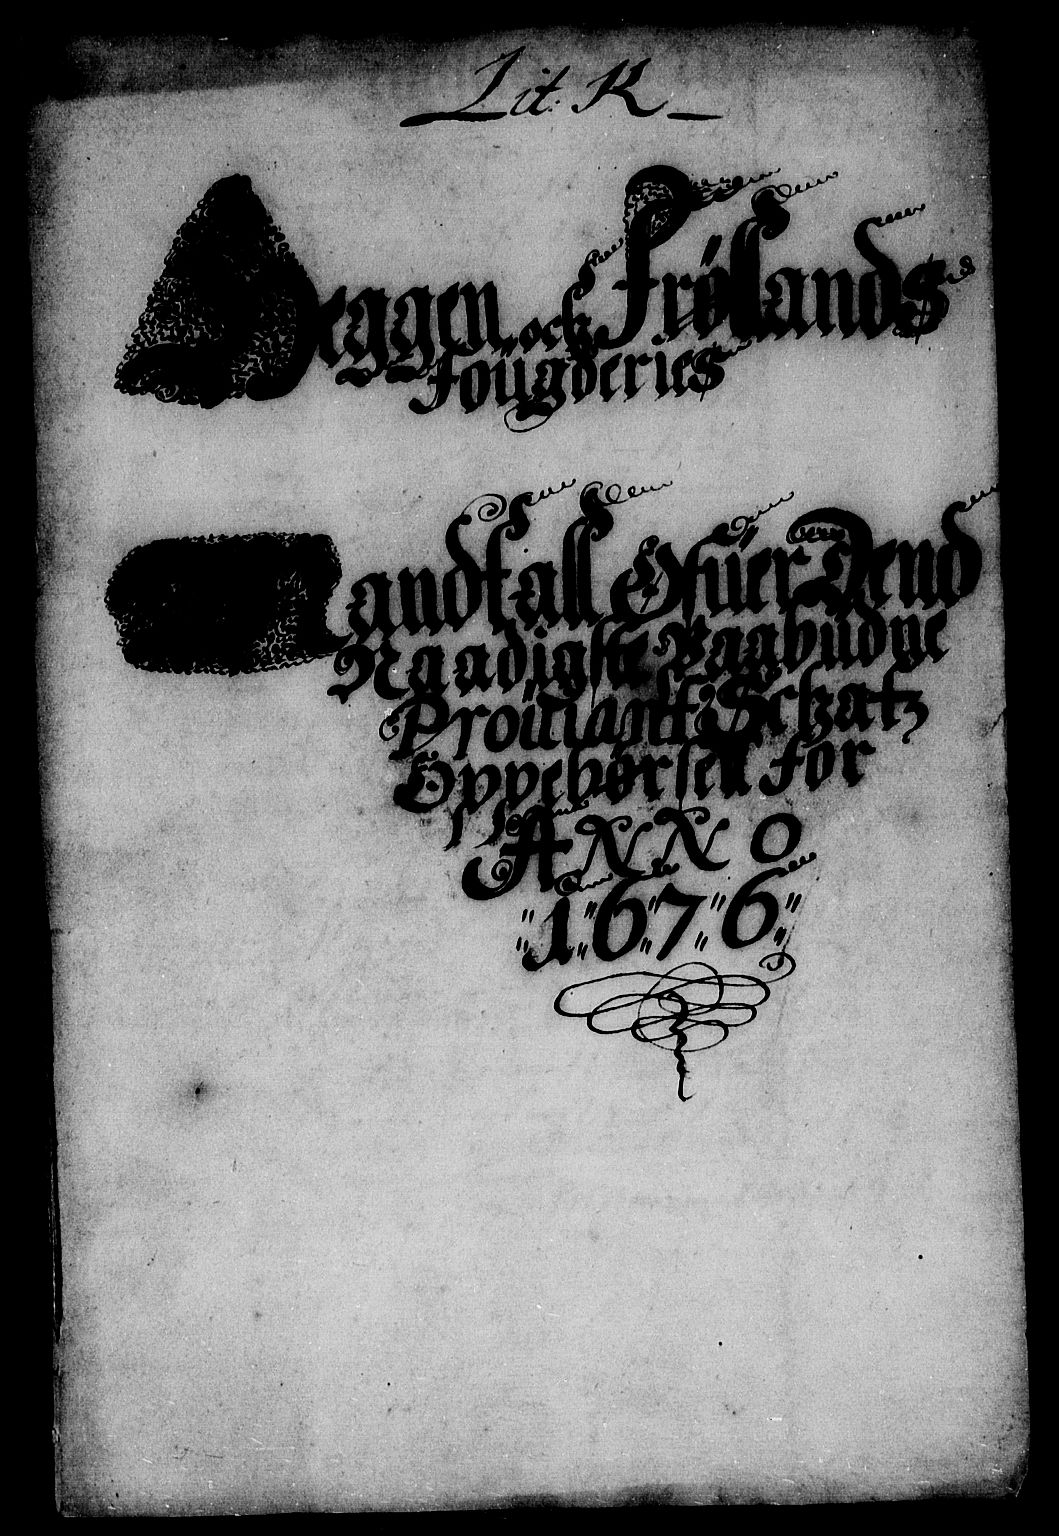 Lit. K
Heggen ock Frølands
fougderies
Mandtall Ofuer Dend
Naadigste Paabudne
Prouiantt Schatz
Oppebørsell for
ANNO
1676